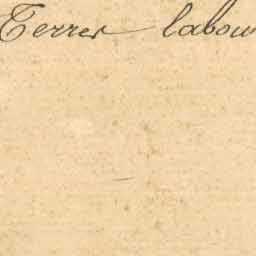 Terres labou